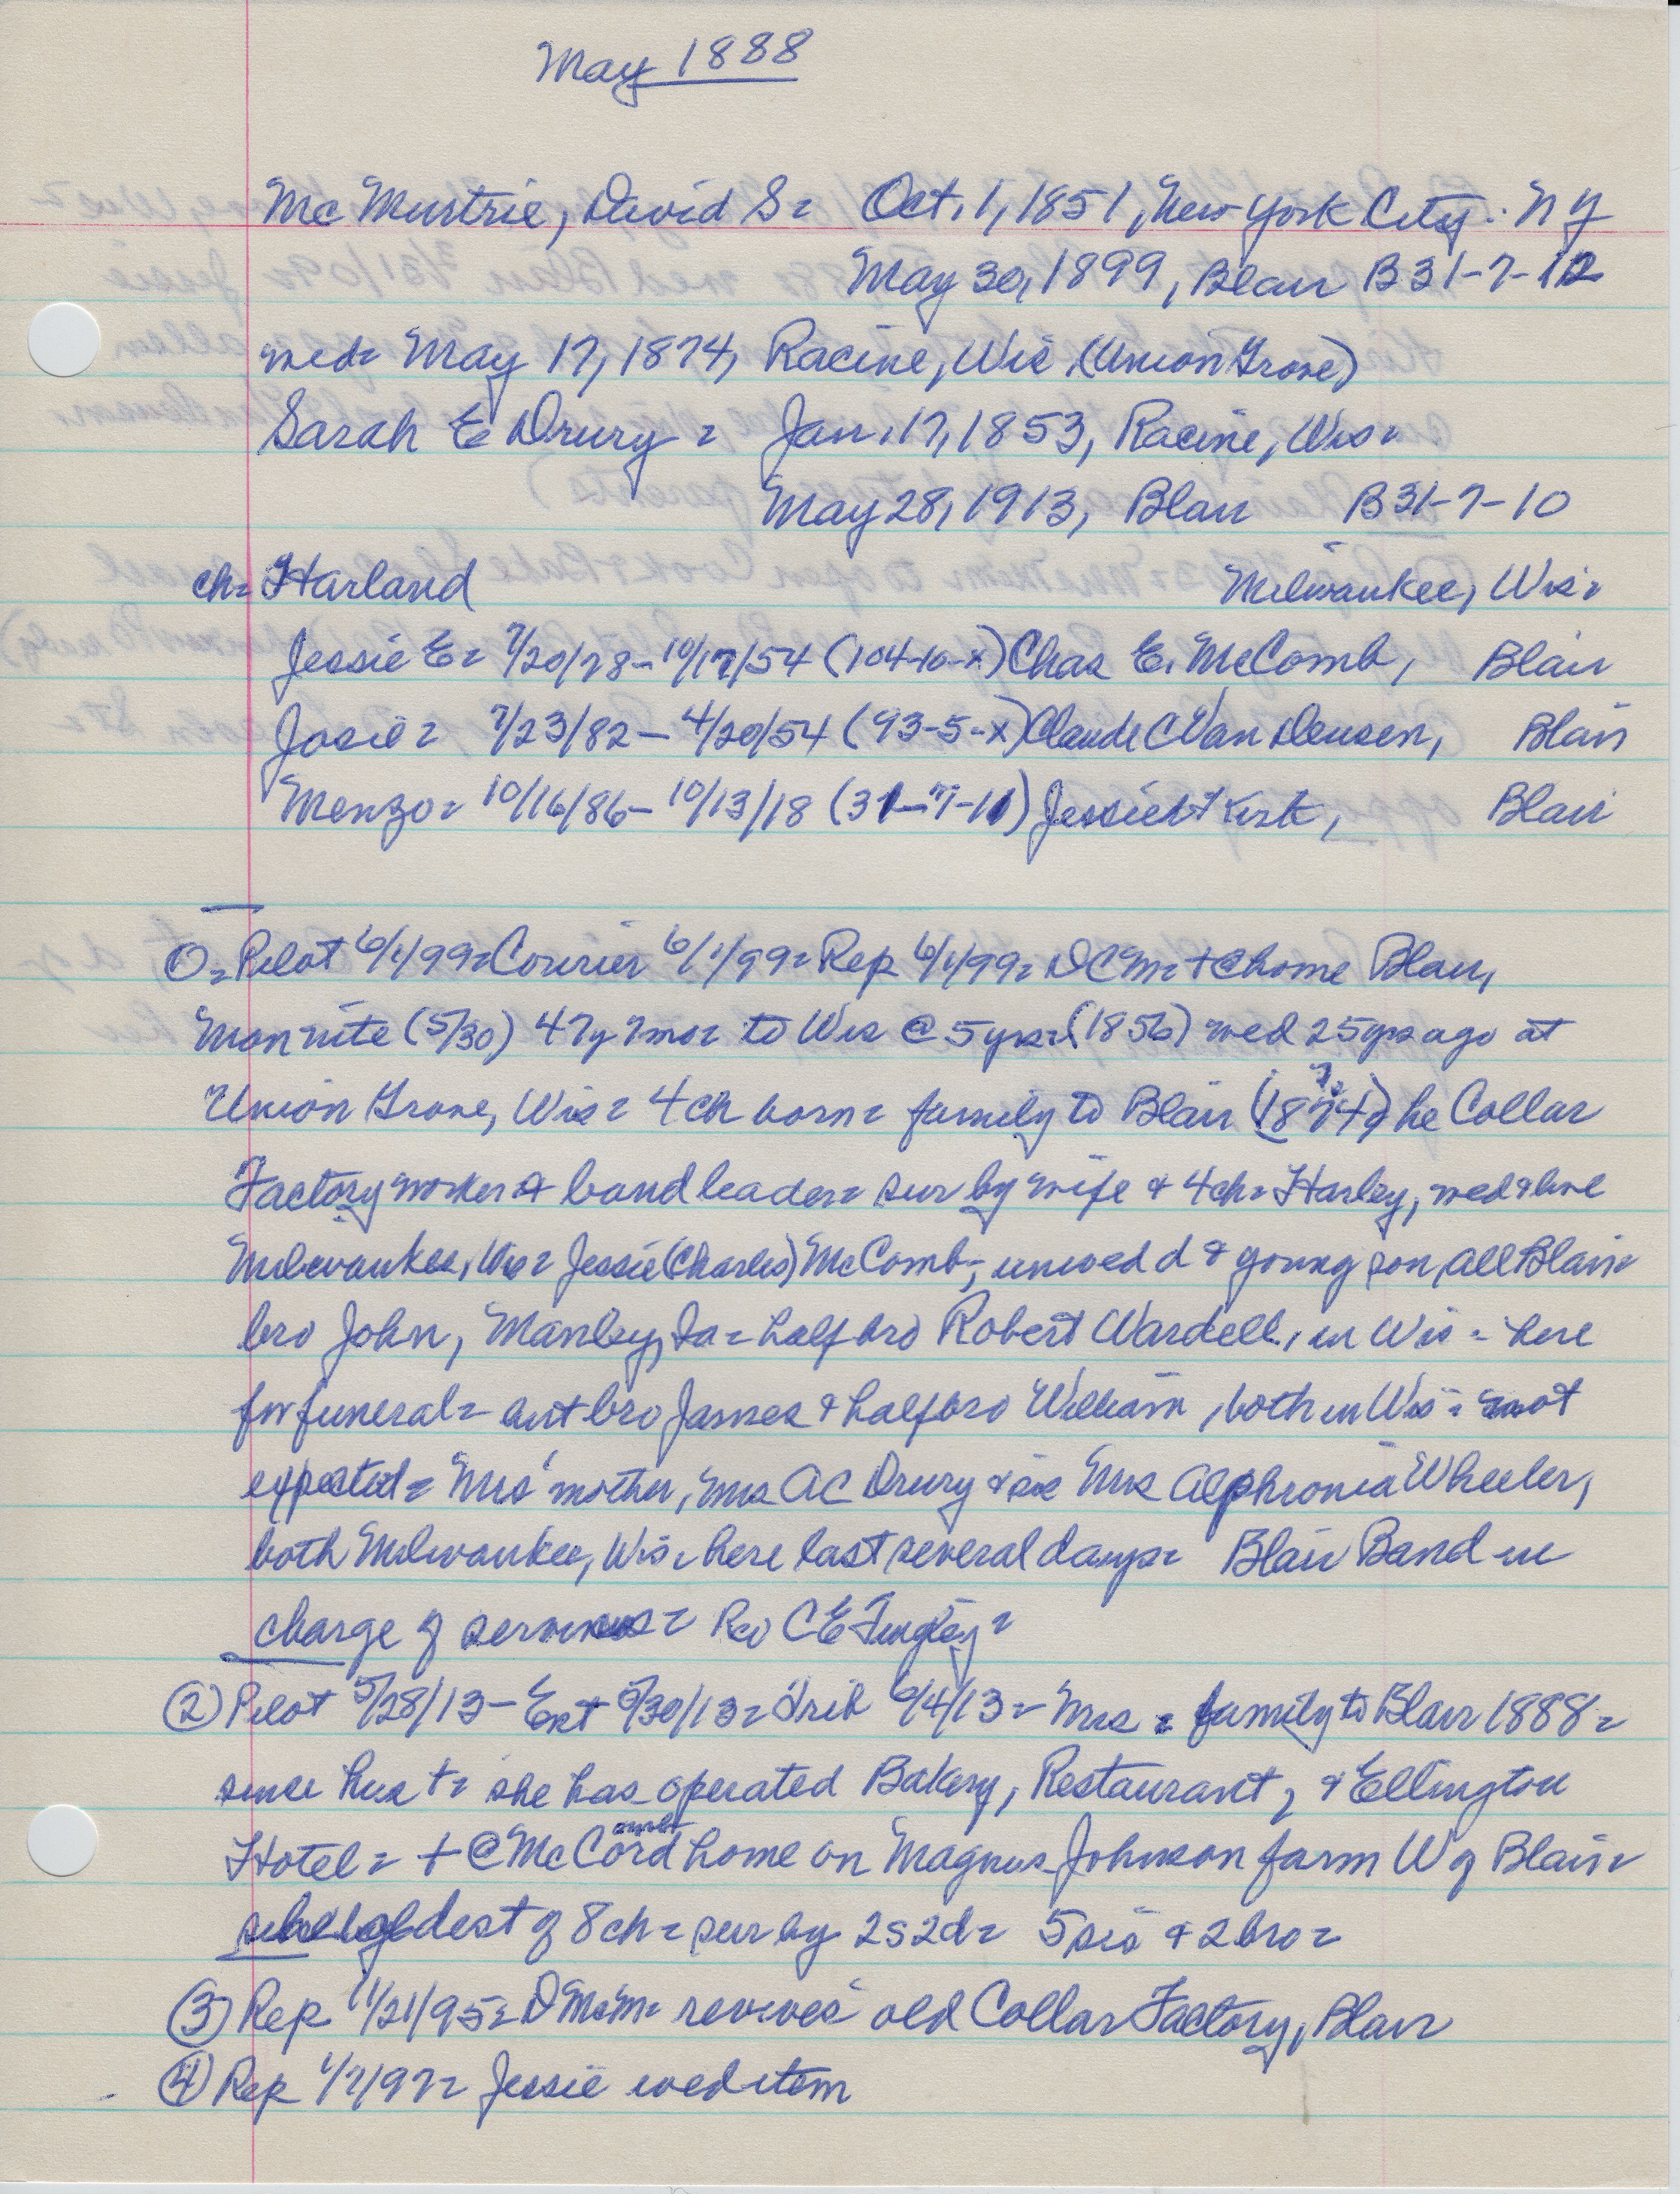 May 1888
Mc Murtrie, David S= Oct. 1, 1851, New York City, NY
May 30, 1899, Blair B31-7-12
wed= May 17, 1874, Racine, Wis (Union Grove)
Sarah E Drury = Jan. 17, 1853, Racine, Wis=
May 28, 1913, Blair B31-7-10
ch= Harland Milwaukee, Wis=
Jessie E= 7/20/78-10/17/54 (104-10-x) Chas E. McComb, Blair
Josie = 7/23/82-4/20/54 (93-5-x) Claude C Van Deusen, Blair
Menzo= 10/16/86-10/13/18 (31-7-11) Jessie Kirk, Blair
①=Pilot 6/1/99=Courier 6/1/99=Rep 6/1/99= DCMc + @ home Blair,
Mon nite (5/30) 47y 7mo= to Wis @ 5yrs= (1856) wed 25yrs ago at
Union Grove, Wis= 4ch born= family to Blair (1874?) he Collar
Factory worker & band leader= sur by wife & 4ch= Harley, wed & live
Milwaukee, Wis= Jessie (Charles) McComb, unwed d & young son, all Blair=
bro John, Manley, Ia= half bro Robert Wardell, in Wis - here
for funeral= but bro James & half bro William, both in Wis= not
expected= Mrs' mother, Mrs AC Drury & sis Mrs Alphronia Wheeler,
both Milwaukee, Wis= here last several days= Blair Band in
charge of services= Rev C E Tingley=
② Pilot 5/28/13-Ent 5/30/13= Trib 6/4/13= Mrs = family to Blair 1888=
since hus += she has operated Bakery, Restaurant, & Ellington
Hotel= + @ McCord comb home on Magnus Johnson farm W of Blair=
oldest of 8ch= sur by 2s 2d= 5 sis & 2 bro=
③ Rep 11/21/95= D McM= revives old Collar Factory, Blair
④ Rep 1/7/97= Jessie wed item